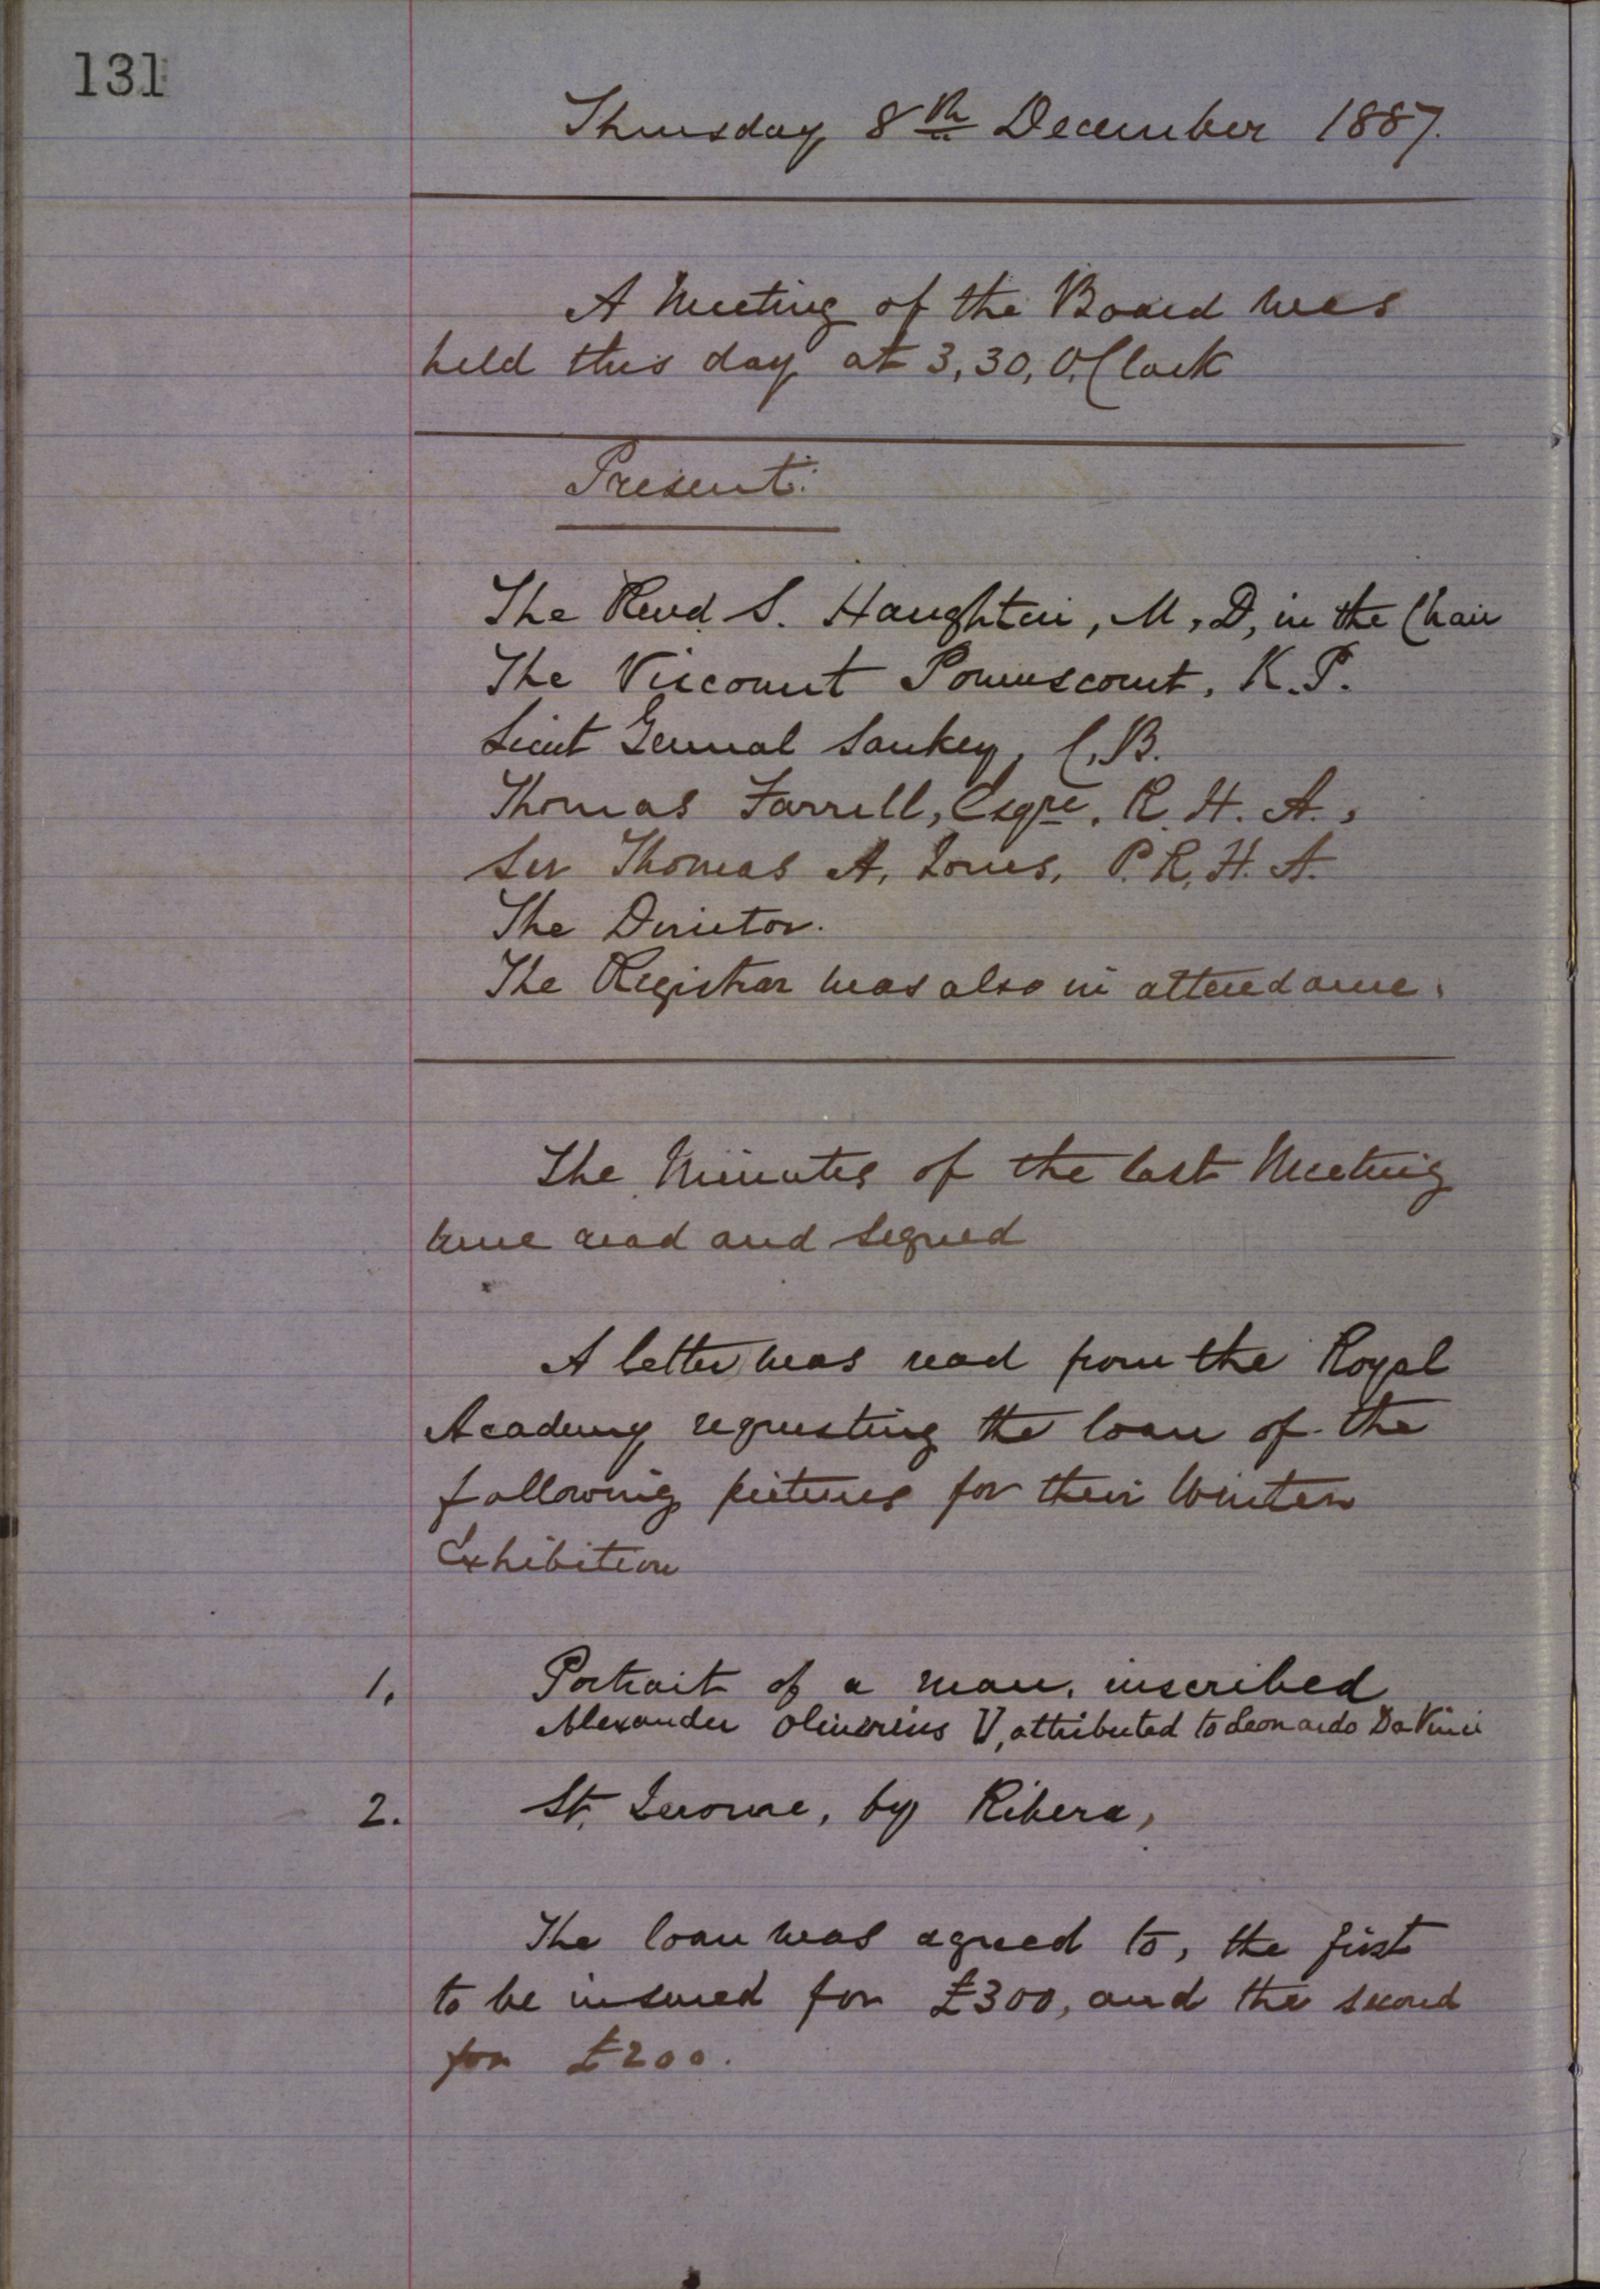 131
Thursday 8th December 1887.
A Meeting of the Board was
held this day at 3,30, O'Clock
Present:
The Revd S. Haughton, M, D, in the Chair
The Viscount Powerscourt, K.P.
Lieut General Sankey, C.B.
Thomas Farrell, Esqre, R.H.A.,
Sir Thomas A, Jones, P.R.H.A.
The Director.
The Registrar was also in attendance.
The Minutes of the last Meeting
were read and signed
A letter was read from the Royal
Academy requesting the loan of the
following pictures for their Winter
Exhibition
1, Portrait of a man, inscribed
Alexander Oliverius V, attributed to Leonardo Da Vinci
2. St, Jerome, by Ribera,
The loan was agreed to, the first
to be insured for £300, and the second
for £200.